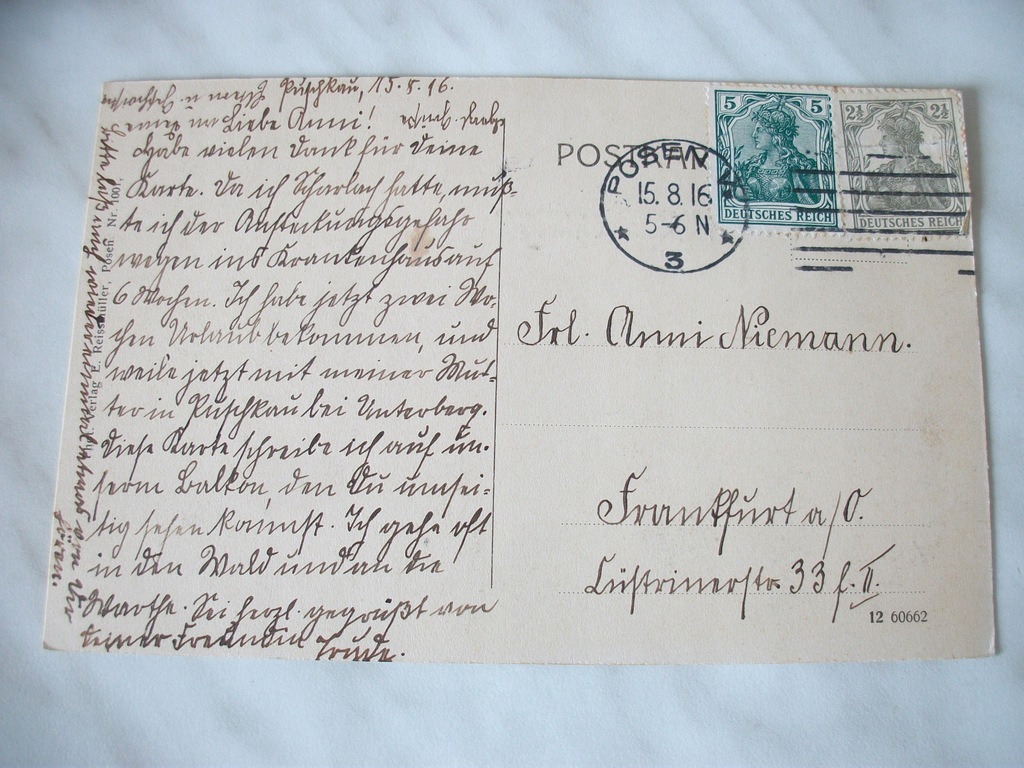 Puschkau, 15.8.16.
Liebe Anni!
Habe vielen Dank für Deine
Karte. Da ich Scharlach hatte, muß-
te ich der Ansteckungsgefahr
wegen ins Krankenhaus auf
6 Wochen. Ich habe jetzt zwei Wo-
chen Urlaub bekommen, und
weile jetzt mit meiner Mut-
ter in Puschkau bei Unterberg.
Diese Karte schreibe ich auf un-
serm Balkon, den Du umsei-
tig sehen kannst. Ich gehe oft
in den Wald und an die
Warthe. Sei herzl. gegrüßt von
Deiner Freundin Trude.
Bitte laß mich wieder einmal etwas von Dir
hören.
Eltern u. Geschwister
Verlag E. Reissmüller, Posen. Nr. 1001.
POSTKARTE
POSEN
15.8.16
5-6 N
3
5 5
DEUTSCHES REICH
2½ 2½
DEUTSCHES REICH
Frl. Anni Niemann.
Frankfurt a/O.
Cüstrinerstr. 33 f. II.
12 60662